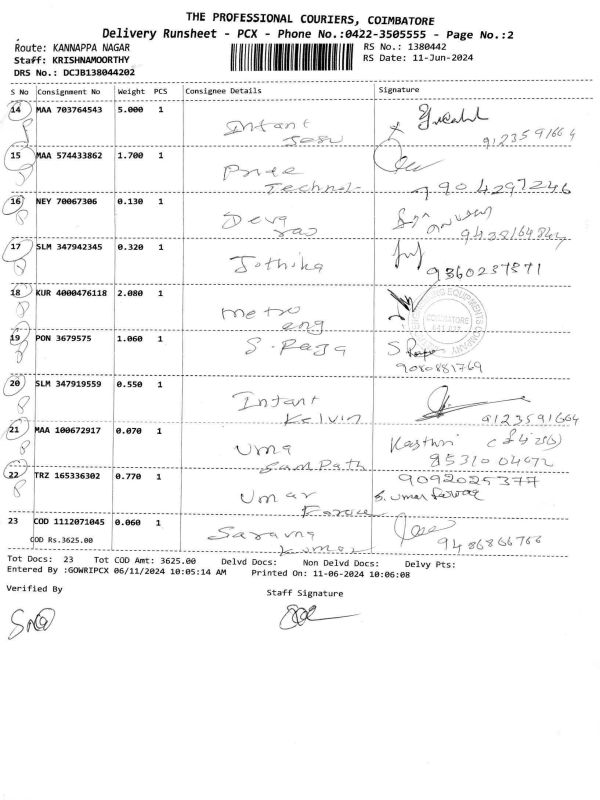 THE PROFESSIONAL COURIERS, COIMBATORE
Delivery Runsheet - PCX - Phone No.:0422-3505555 - Page No.:2
Route: KANNAPPA NAGAR
RS No.: 1380442
Staff: KRISHNAMOORTHY
RS Date: 11-Jun-2024
DRS No.: DCJB138044202
S No Consignment No Weight PCS Consignee Details Signature
14 MAA 703764543 5.000 1 Infant
Jesu 9123591664
15 MAA 574433862 1.700 1
7904297246
16 NEY 70067306 0.130 1 Deva
rao
17 SLM 347942345 0.320 1 Jothika
9360237371
18 KUR 4000476118 2.080 1 metro
eng COIMBATORE
19 PON 3679575 1.060 1 S. Raja
9080881769
20 SLM 347919559 0.550 1 Infant
Kelvin 9123591664
21 MAA 100672917 0.070 1 Uma Kasthuri
Sampath 8531004072
22 TRZ 165336302 0.770 1 9092025377
Umar S. Umar Farooq
23 COD 1112071045 0.060 1 Saravna
COD Rs.3625.00 Kumar 9486866766
Tot Docs: 23 Tot COD Amt: 3625.00 Delvd Docs: Non Delvd Docs: Delvy Pts:
Entered By :GOWRIPCX 06/11/2024 10:05:14 AM Printed On: 11-06-2024 10:06:08
Verified By Staff Signature